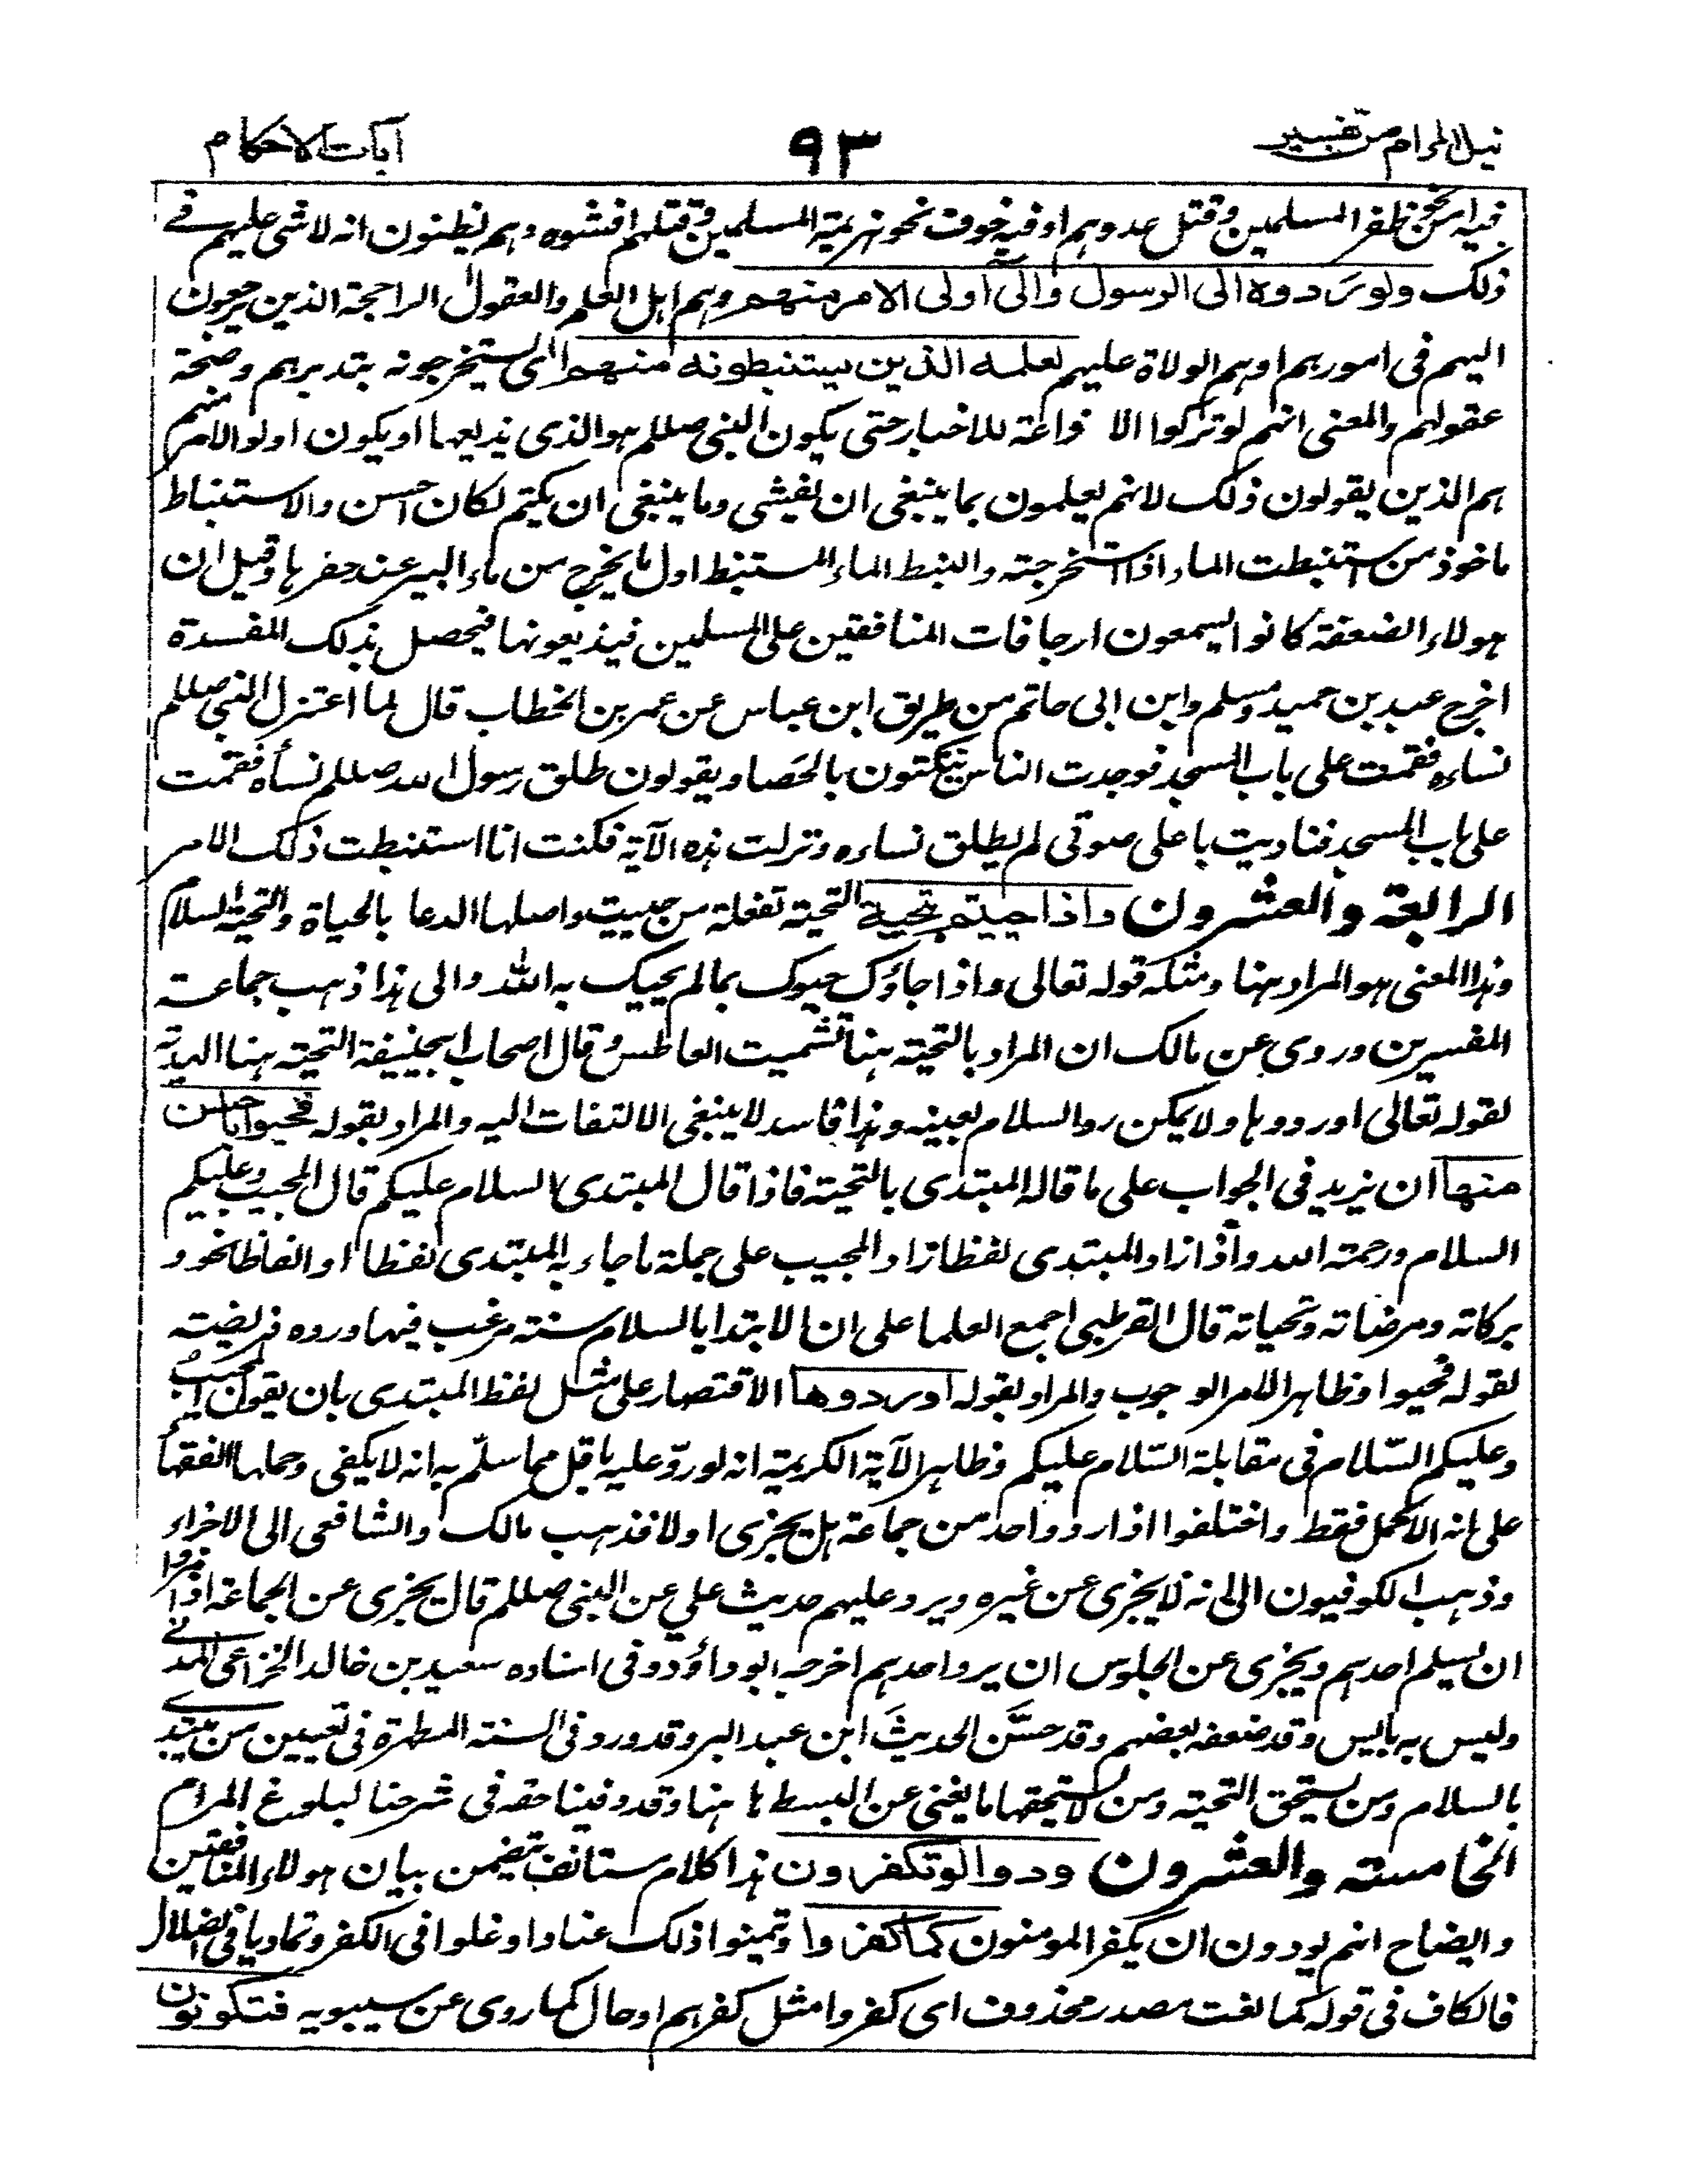 نيل المرام من تفسير ٩٣ آيات الاحكام
فيه امن نحو ظفر المسلمين وقتل عدوهم او فيه خوف نحو هزيمة المسلمين وقتلهم افشوه وهم يظنون انه لا شي عليهم في
ذلك ولو ردوه الى الرسول والى اولى الامر منهم وهم اهل العلم والعقول الراجحة الذين يرجعون
اليهم فى امورهم او هم الولاة عليهم لعلمه الذين يستنبطونه منهم اى يستخرجونه بتدبرهم وصحة
عقولهم والمعنى انهم لو تركوا الاذاعة للاخبار حتى يكون النبى صللم هو الذى يذيعها او يكون اولو الامر منهم
هم الذين يقولون ذلك لانهم يعلمون بما ينبغى ان يفشى وما ينبغى ان يكتم لكان احسن والاستنباط
ماخوذ من استنبطت الماء اذا استخرجته والنبط الماء المستنبط اول ما يخرج من ماء البير عند حفرها وقيل ان
هولاء الضعفة كانوا يسمعون ارجافات المنافقين على المسلمين فيذيعونها فيحصل بذلك المفسدة
اخرج عبد بن حميد ومسلم وابن ابى حاتم من طريق ابن عباس عن عمر بن الخطاب قال لما اعتزل النبى صللم
نساءه قمت على باب المسجد فوجدت الناس ينكتون بالحَصا ويقولون طلق رسول الله صللم نسأه فقمت
على باب المسجد فناديت با على صوتى لم يطلق نساءه ونزلت هذه الآية فكنت انا استنبطت ذلك الامر
الرابعة والعشرون واذا حييتم بتحية التحية تفعلة من حييت واصلها الدعا بالحياة والتحية السلام
وهذا المعنى هو المراد هنا ومثله قوله تعالى واذا جاؤك حيوك بما لم يحيك به الله والى هذا ذهب جماعة
المفسرين وروى عن مالك ان المراد بالتحية هنا تشميت العاطس وقال اصحاب ابيحنيفة التحية هنا الهدية
لقوله تعالى او ردوها ولا يمكن رد السلام بعينه وهذا فاسد لا ينبغى الالتفات اليه والمراد بقوله فحيوا باحسن
منها ان يزيد فى الجواب على ما قاله المبتدى بالتحية فاذا قال المبتدى السلام عليكم قال المجيب وعليكم
السلام ورحمة الله واذا زاد المبتدى لفظا زاد المجيب على جملة ما جاء به المبتدى لفظا او الفاظا نحو و
بركاته ومرضاته وتحياته قال القرطبى اجمع العلما على ان الابتدا بالسلام سنة مرغب فيها ورده فريضة
لقوله فحيوا وظاهر الامر الوجوب والمراد بقوله او ردوها الاقتصار على مثل لفظ المبتدى بان يقول المجيب
وعليكم السّلام فى مقابلة السّلام عليكم وظاهر الآية الكريمة انه لو ردّ عليه باقل مما سلّم به انه لا يكفى وحملها الفقهأ
على انه الاكمل فقط واختلفوا اذا رد واحد من جماعة هل يجزى اولا فذهب مالك والشافعى الى الاجزاء
وذهب الكوفيون الى انه لا يجزى عن غيره ويرد عليهم حديث علي عن النبى صللم قال يجزى عن الجماعة اذا مروا
ان يسلم احدهم ويجزى عن الجلوس ان يرد احدهم اخرجه ابو داؤد وفى اسناده سعيد بن خالد الخزاعى المدنے
وليس به باس وقد ضعفه بعضهم وقد حسَّن الحديثَ ابن عبد البر وقد ورد فى السنة المطهرة فى تعيين من يبتدے
بالسلام ومن يستحق التحية ومن لا يستحقها ما يغنى عن البسط ها هنا وقد وفينا حقه فى شرحنا لبلوغ المرام
الخامسة والعشرون ودوا لو تكفرون هذا كلام مستانف يتضمن بيان هولاء المنافقين
وايضاح انهم يودون ان يكفر المومنون كما كفروا وتمنوا ذلك عنادا وغلوا فى الكفر وتماديا فى الضلال
فالكاف فى قوله كما نعت مصدر محذوف اى كفروا مثل كفرهم او حال كما روى عن سيبويه فتكونون